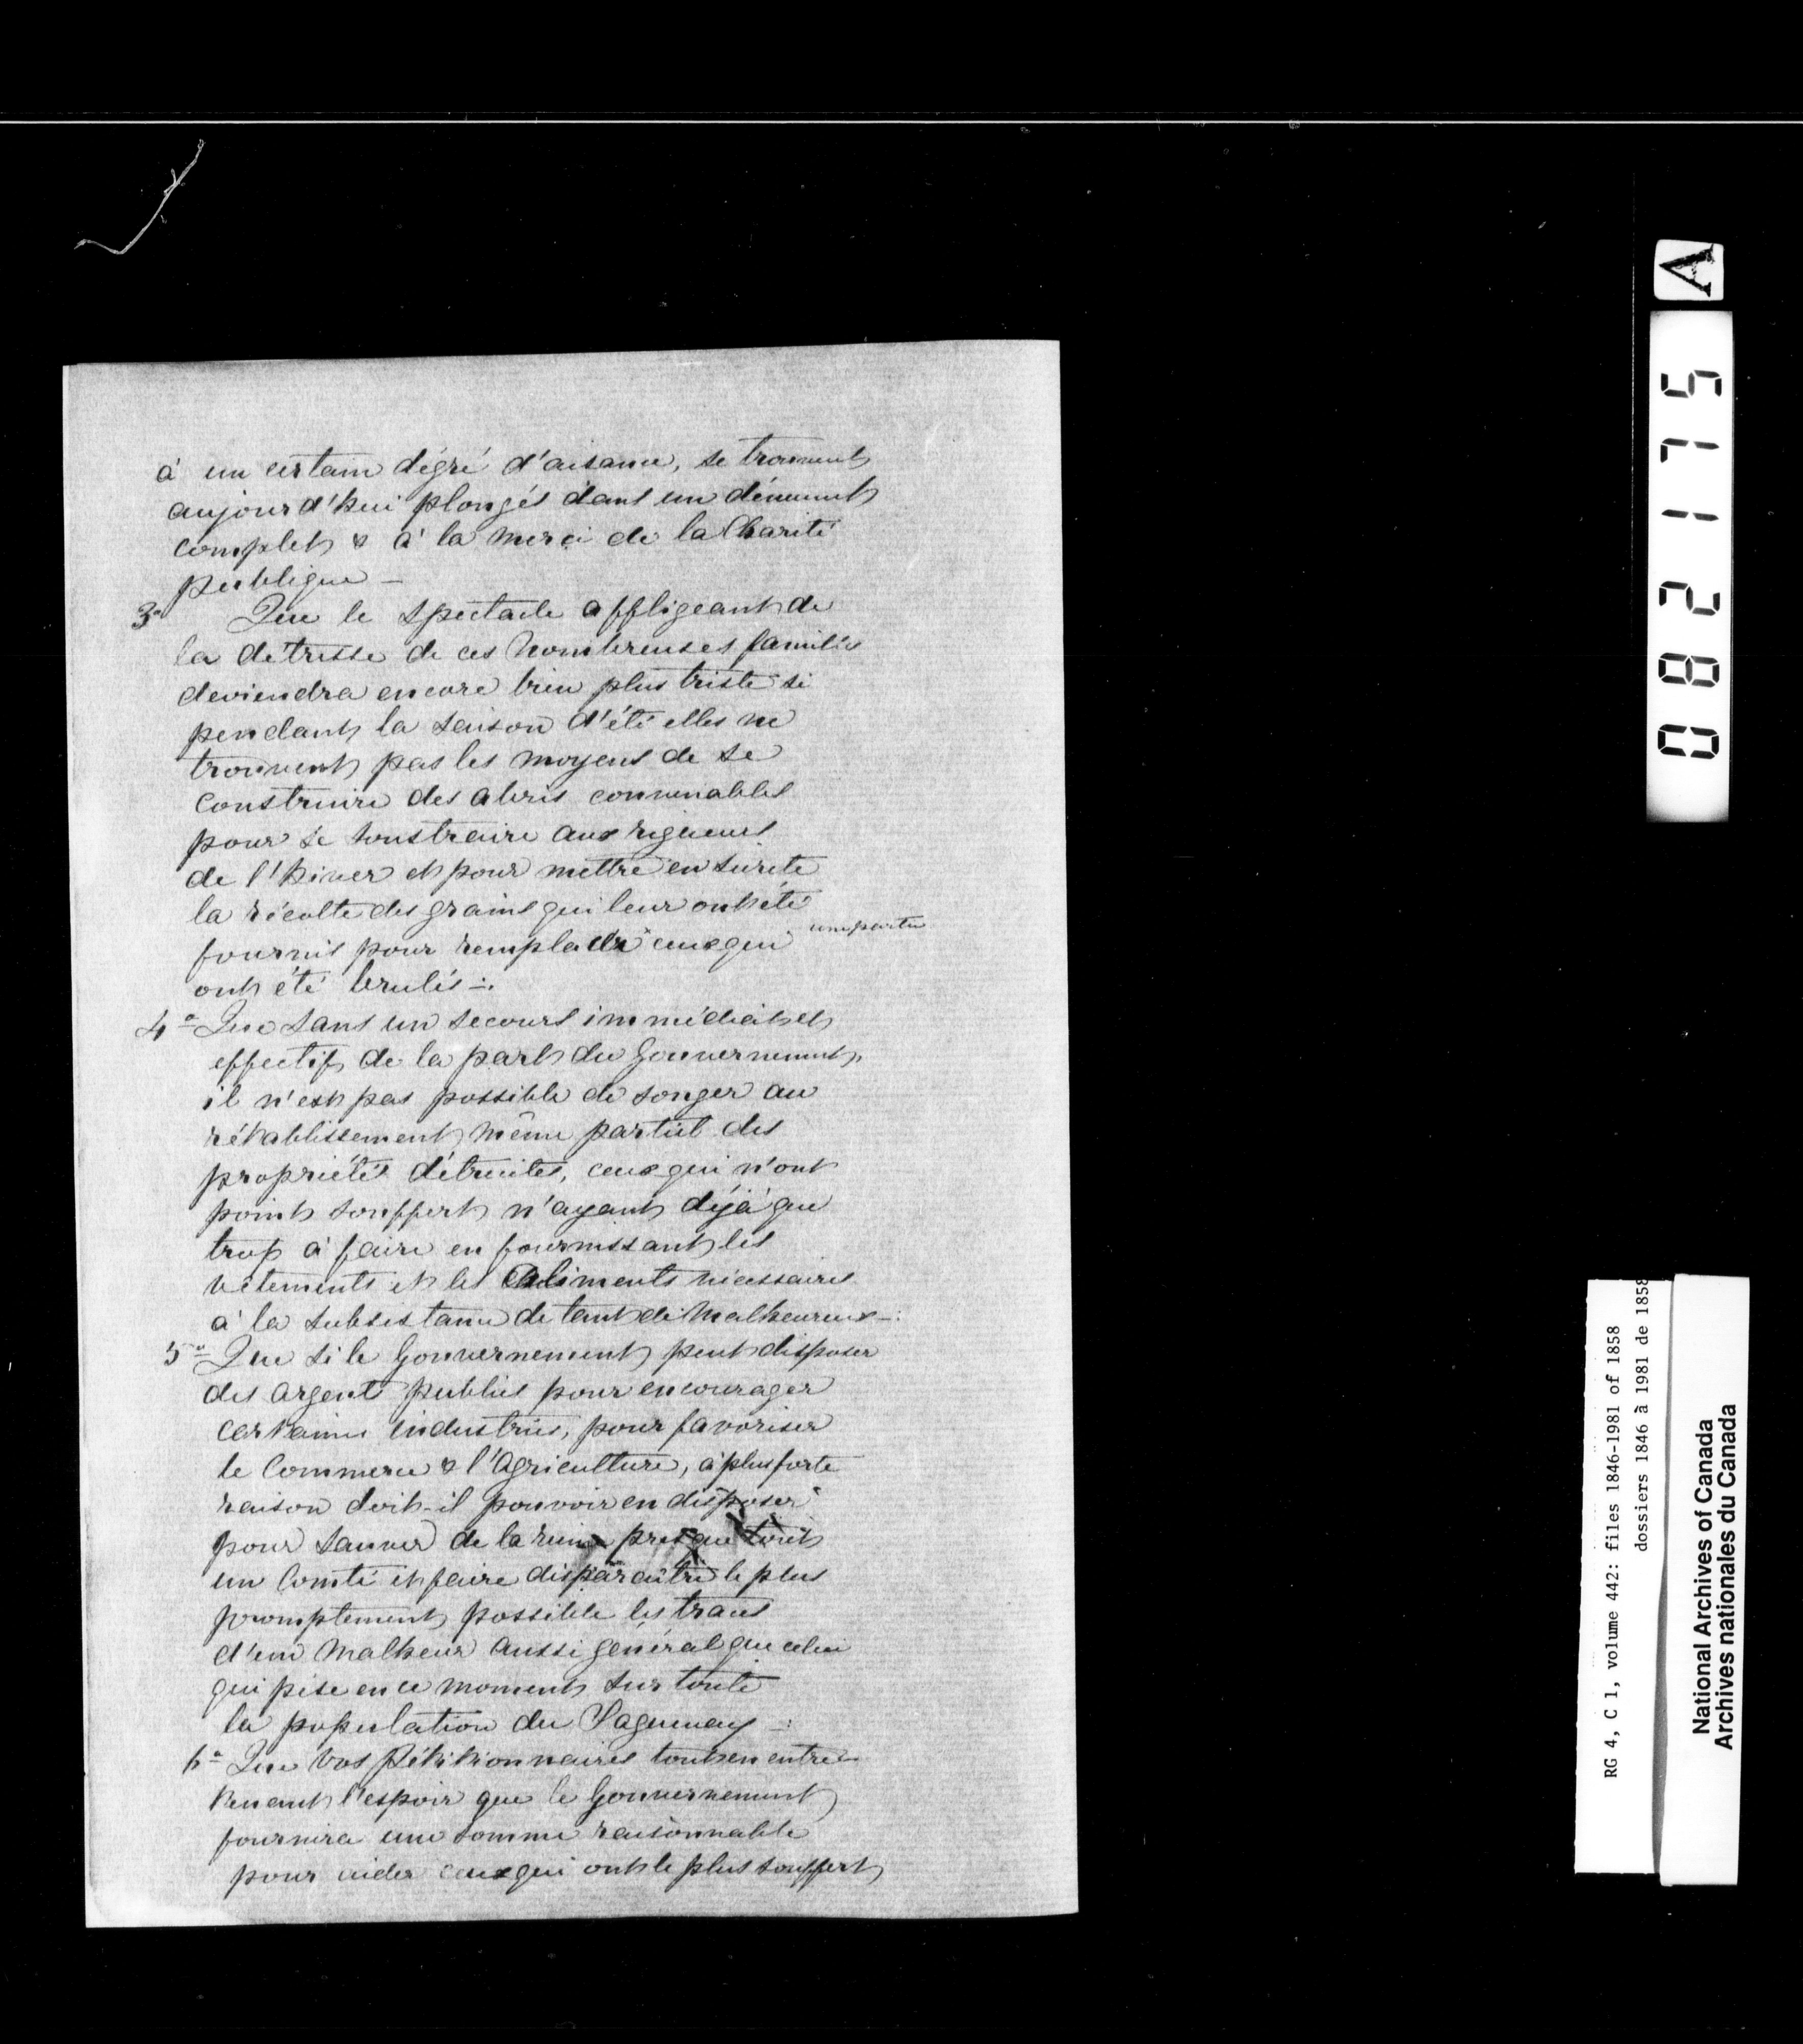 à un certain dégré d'aisance, se trouvent
aujourd'hui plongés dans un dénument
complet & à la merci de la Charité
publique —
3° Que le spectacle affligeant de
la détresse de ces nombreuses familles
deviendra encore bien plus triste si
pendant la saison d'été elles ne
trouvent pas les moyens de se
construire des abris convenables
pour se soustraire aux rigueurs
de l'hiver et pour mettre en sureté
la récolte des grains qui leur ont été
fournis pour remplacer ceux qui en partie
ont été brulés -:
4° Que sans un secours immédiat et
effectif de la part du Gouvernement,
il n'est pas possible de songer au
rétablissement même partiel des
propriétés détruites, ceux qui n'ont
point souffert n'ayant déjà que
trop à faire en fournissant les
vêtements et les Aliments nécessaires
à la subsistance de tant de Malheureux -:
5° Que si le Gouvernement peut disposer
des argents publics pour encourager
certaines industries, pour favoriser
le Commerce & l'Agriculture, à plus forte
raison doit-il pouvoir en disposer
pour sauver de la ruine presque tout
un Comté et faire disparaître le plus
promptement possible les traces
d'un Malheur aussi général que celui
qui pèse en ce moment sur toute
la population du Saguenay -:
6° Que vos Pétitionnaires tout en entre-
tenant l'espoir que le Gouvernement
fournira une somme raisonnable
pour aider ceux qui ont le plus souffert
A
082175
RG 4, C 1, volume 442: files 1846-1981 of 1858
dossiers 1846 à 1981 de 1858
National Archives of Canada
Archives nationales du Canada